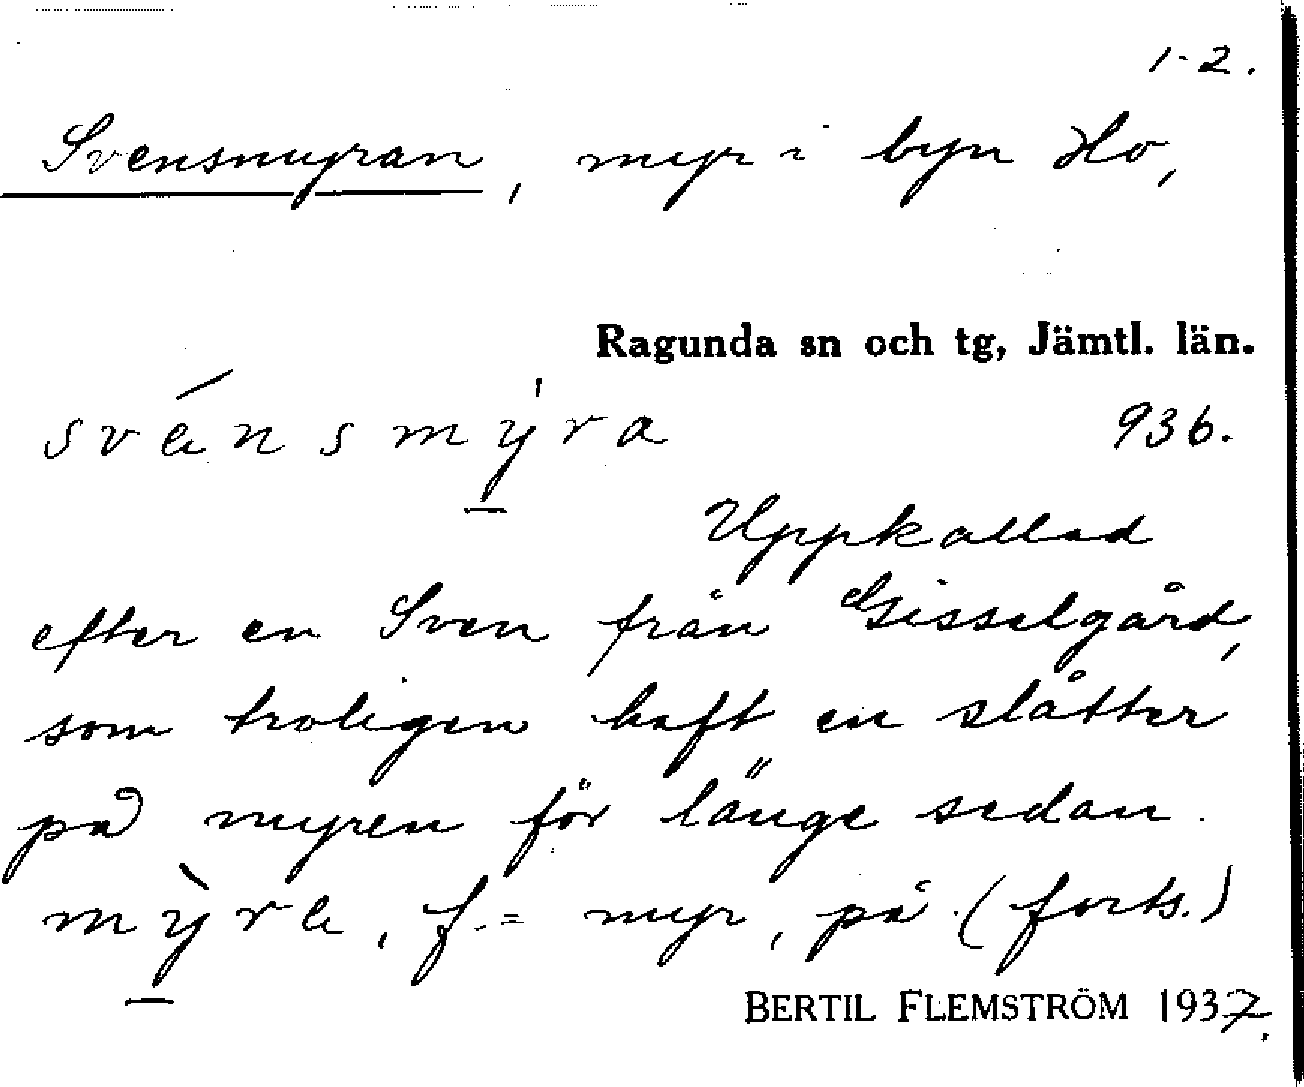 1-2.
Svensmyran, myr i byn Ho,
Ragunda sn och tg, Jämtl. län.
svä́nsmy̱̍ra 936.
Uppkallad
efter en Sven från Gisselgård,
som troligen haft en slåtter
på myren för länge sedan.
mỳ̱rä, f. = myr, på (forts.)
BERTIL FLEMSTRÖM 1937.